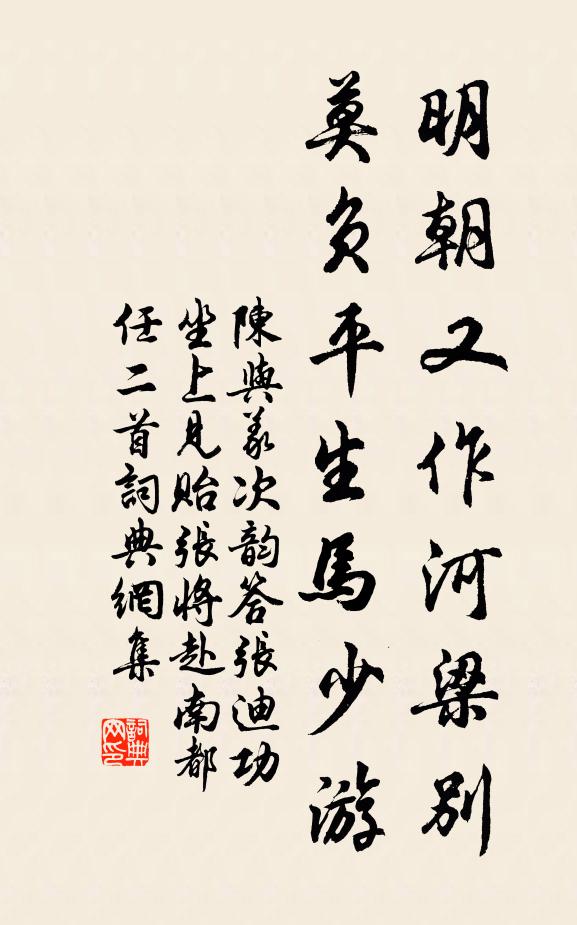 明朝又作河梁別
莫負平生馬少游
陳與義次韵答張迪功
坐上見貽張將赴南都
任二首詞典網集
詞典網印